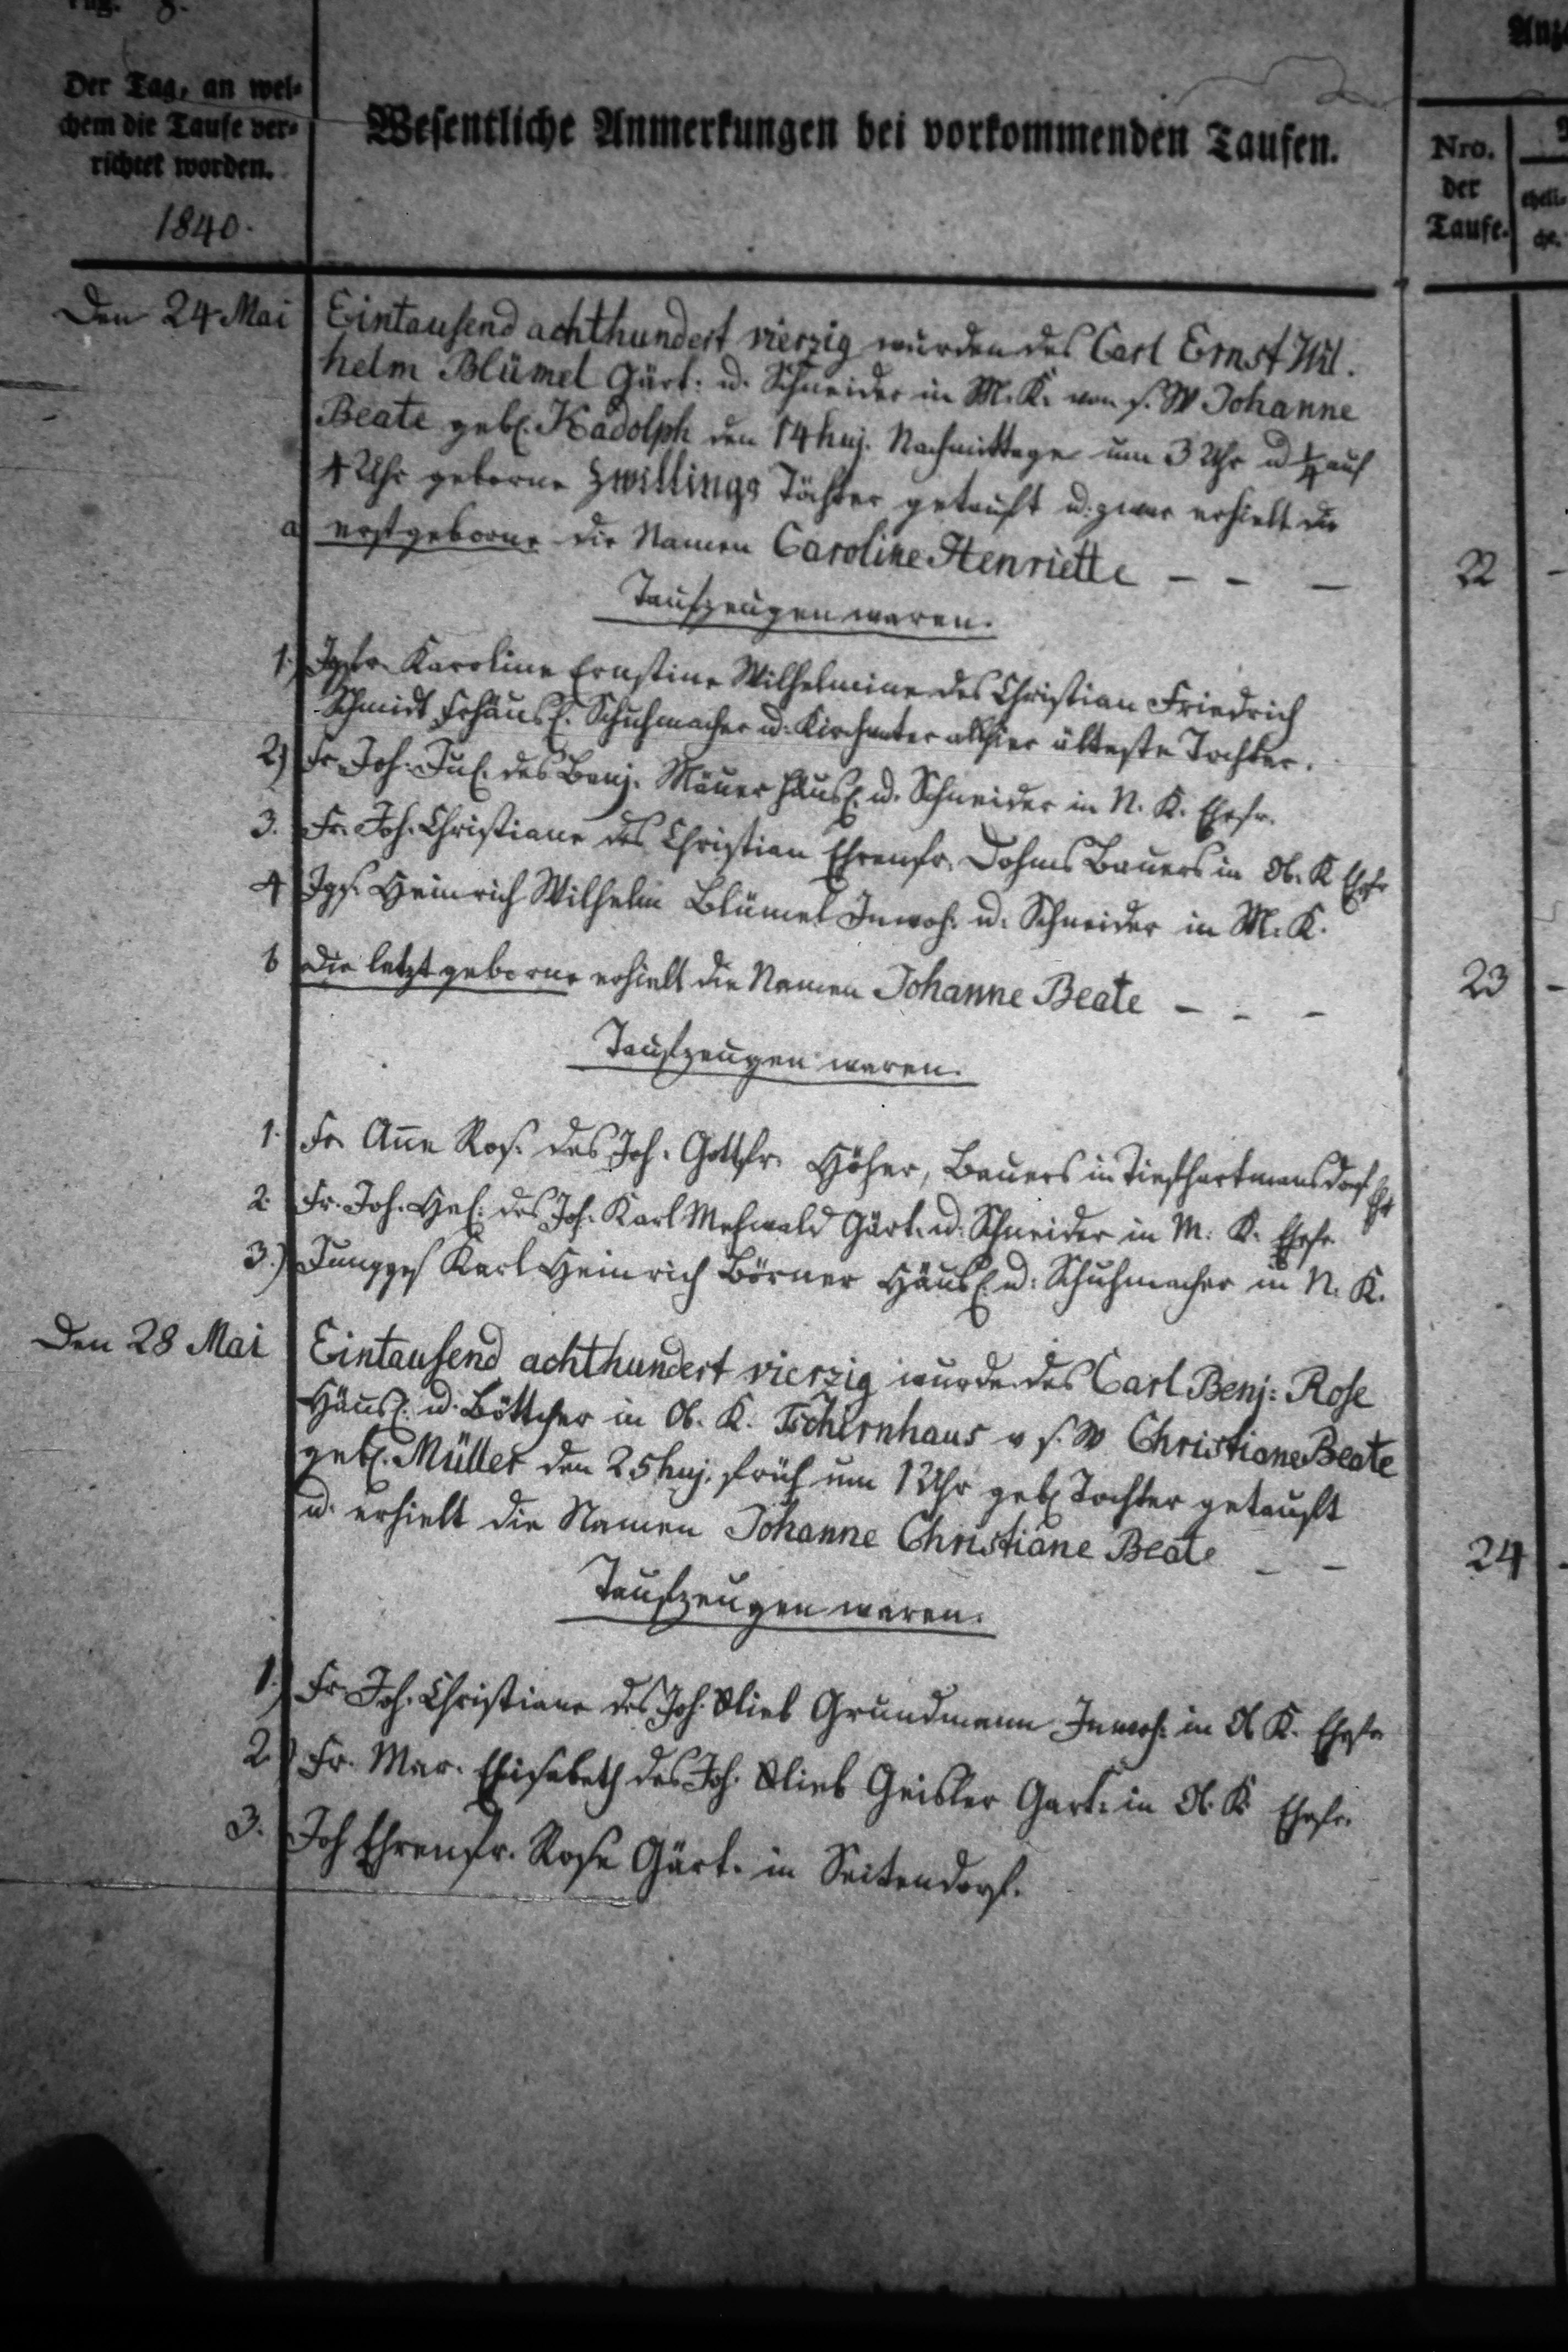 Pag. 8.
Der Tag, an wel-
chem die Taufe ver-
richtet worden.
1840.
Wesentliche Anmerkungen bei vorkommenden Taufen.
Nro.
der
Taufe.
eheli-
che.
Den 24 Mai
Eintausend achthundert vierzig wurden des Carl Ernst Wil.
helm Blümel Gärt: u. Schneider in M. K. von s. W Johanne
Beate geb. Kadolph den 14 huj. Nachmittags um 3 Uhr u ¼ auf
4 Uhr geborne Zwillings Töchter getauft u. zwar erhielt die
a erstgeborne die Namen Caroline Henriette - - -
22
Taufzeugen waren.
1.) Jgfr. Karoline Ernstine Wilhelmine des Christian Friedrich
Schmidt Häusl. Schuhmacher u. Kirchvater allhier älteste Tochter.
2) Fr. Joh. Jul. des Benj. Mäuer Häusl. u. Schneider in N. K. Ehefr.
3. Fr. Joh. Christiane des Christian Ehrenfr. Dohms Bauers in Ob. K Ehefr
4 Jgs. Heinrich Wilhelm Blümel Inwoh. u. Schneider in M. K.
b Die letzt geborne erhielt die Namen Johanne Beate - - -
23
Taufzeugen waren.
1. Fr. Anne Ros. des Joh. Gottfr. Höher, Bauers in Tiefhartmansdorf Ehfr
2. Fr. Joh. Hel. des Joh. Karl Mehwald Gärt. u. Schneider in M. K. Ehefr
3.) Junggs Karl Heinrich Börner Häusl. u. Schuhmacher in N. K.
Den 28 Mai
Eintausend achthundert vierzig wurde des Carl Benj: Rose
Häusl. u. Böttcher in Ob. K. Tschirnhaus v s. W Christiane Beate
geb. Müller den 25 huj. früh um 1 Uhr geb. Tochter getauft
u. erhielt die Namen Johanne Christiane Beate - -
24
Taufzeugen waren.
1.) Fr. Joh. Christiane des Joh. Glieb Grundmann Inwoh: in Ob K. Ehefr
2.) Fr. Mar. Elisabeth des Joh. Glieb Geisler Gärt. in Ob. K Ehefr.
3. Joh Ehrenfr. Rose Gärt. in Seitendorf.